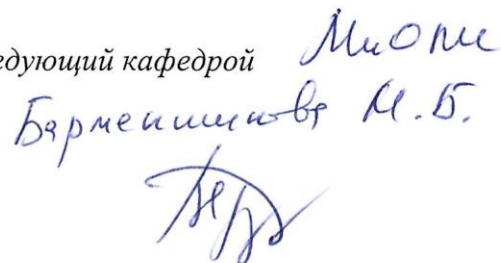 едующий кафедрой МиОПИ
Барменшинова М.Б.